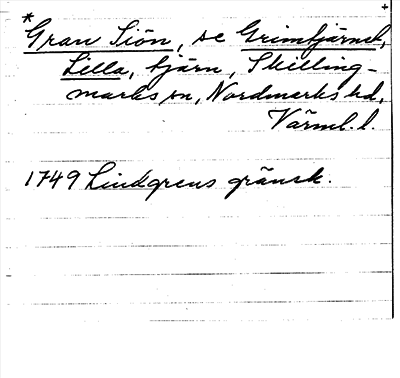 *
Gran Siön, se Grimtjärnet,
Lilla, tjärn, Skilling-
marks sn, Nordmarks hd,
Värml. l.
1749 Lindgrens gränsk.